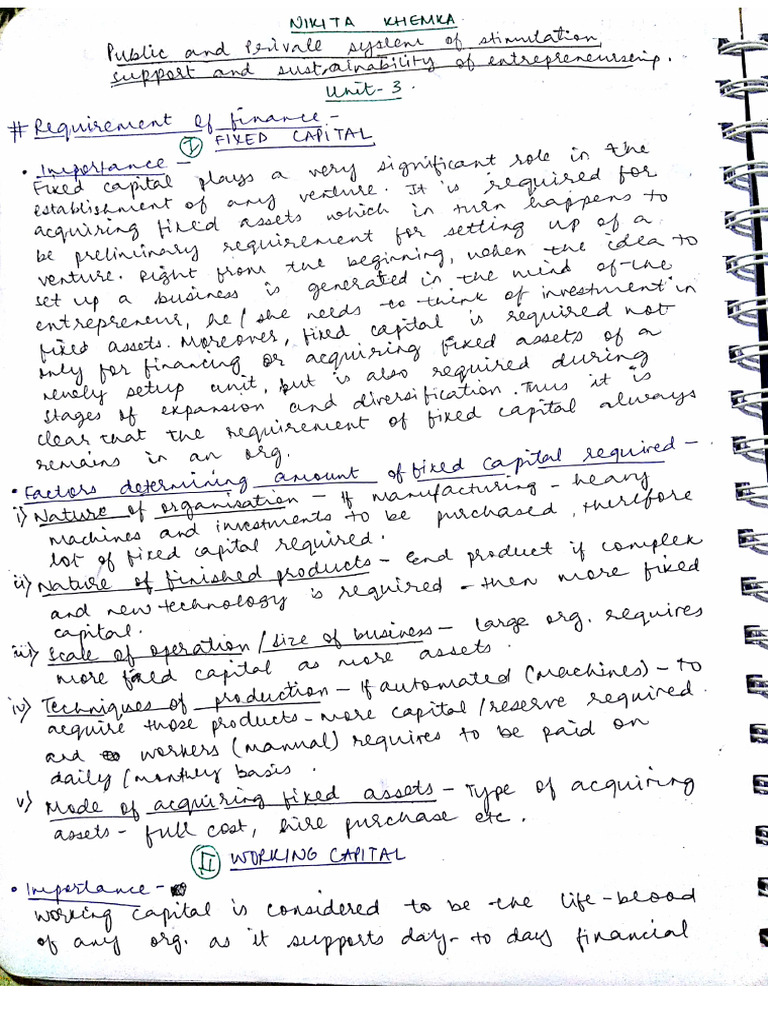 NIKITA KHEMKA
Public and Private system of stimulation,
support and sustainability of entrepreneurship.
Unit-3.
# Requirement of finance -
I FIXED CAPITAL
• Importance -
Fixed capital plays a very significant role in the
establishment of any venture. It is required for
acquiring fixed assets which in turn happens to
be preliminary requirement for setting up of a
venture. Right from the beginning, when the idea to
set up a business is generated in the mind of the
entrepreneur, he/she needs to think of investment in
fixed assets. Moreover, fixed capital is required not
only for financing or acquiring fixed assets of a
newly setup unit, but is also required during
stages of expansion and diversification. Thus it is
clear that the requirement of fixed capital always
remains in an org.
• Factors determining amount of fixed capital required -
i) Nature of organisation - If manufacturing - heavy
machines and investments to be purchased, therefore
lot of fixed capital required.
ii) Nature of finished products - End product if complex
and new technology is required - then more fixed
capital.
iii) Scale of operation/size of business - large org. requires
more fixed capital as more assets.
iv) Techniques of production - If automated (machines) - to
acquire those products - more capital/reserve required.
and workers (manual) requires to be paid on
daily/monthly basis.
v) Mode of acquiring fixed assets - Type of acquiring
assets - full cost, hire purchase etc.
II WORKING CAPITAL
• Importance -
Working capital is considered to be the life-blood
of any org. as it supports day-to day financial